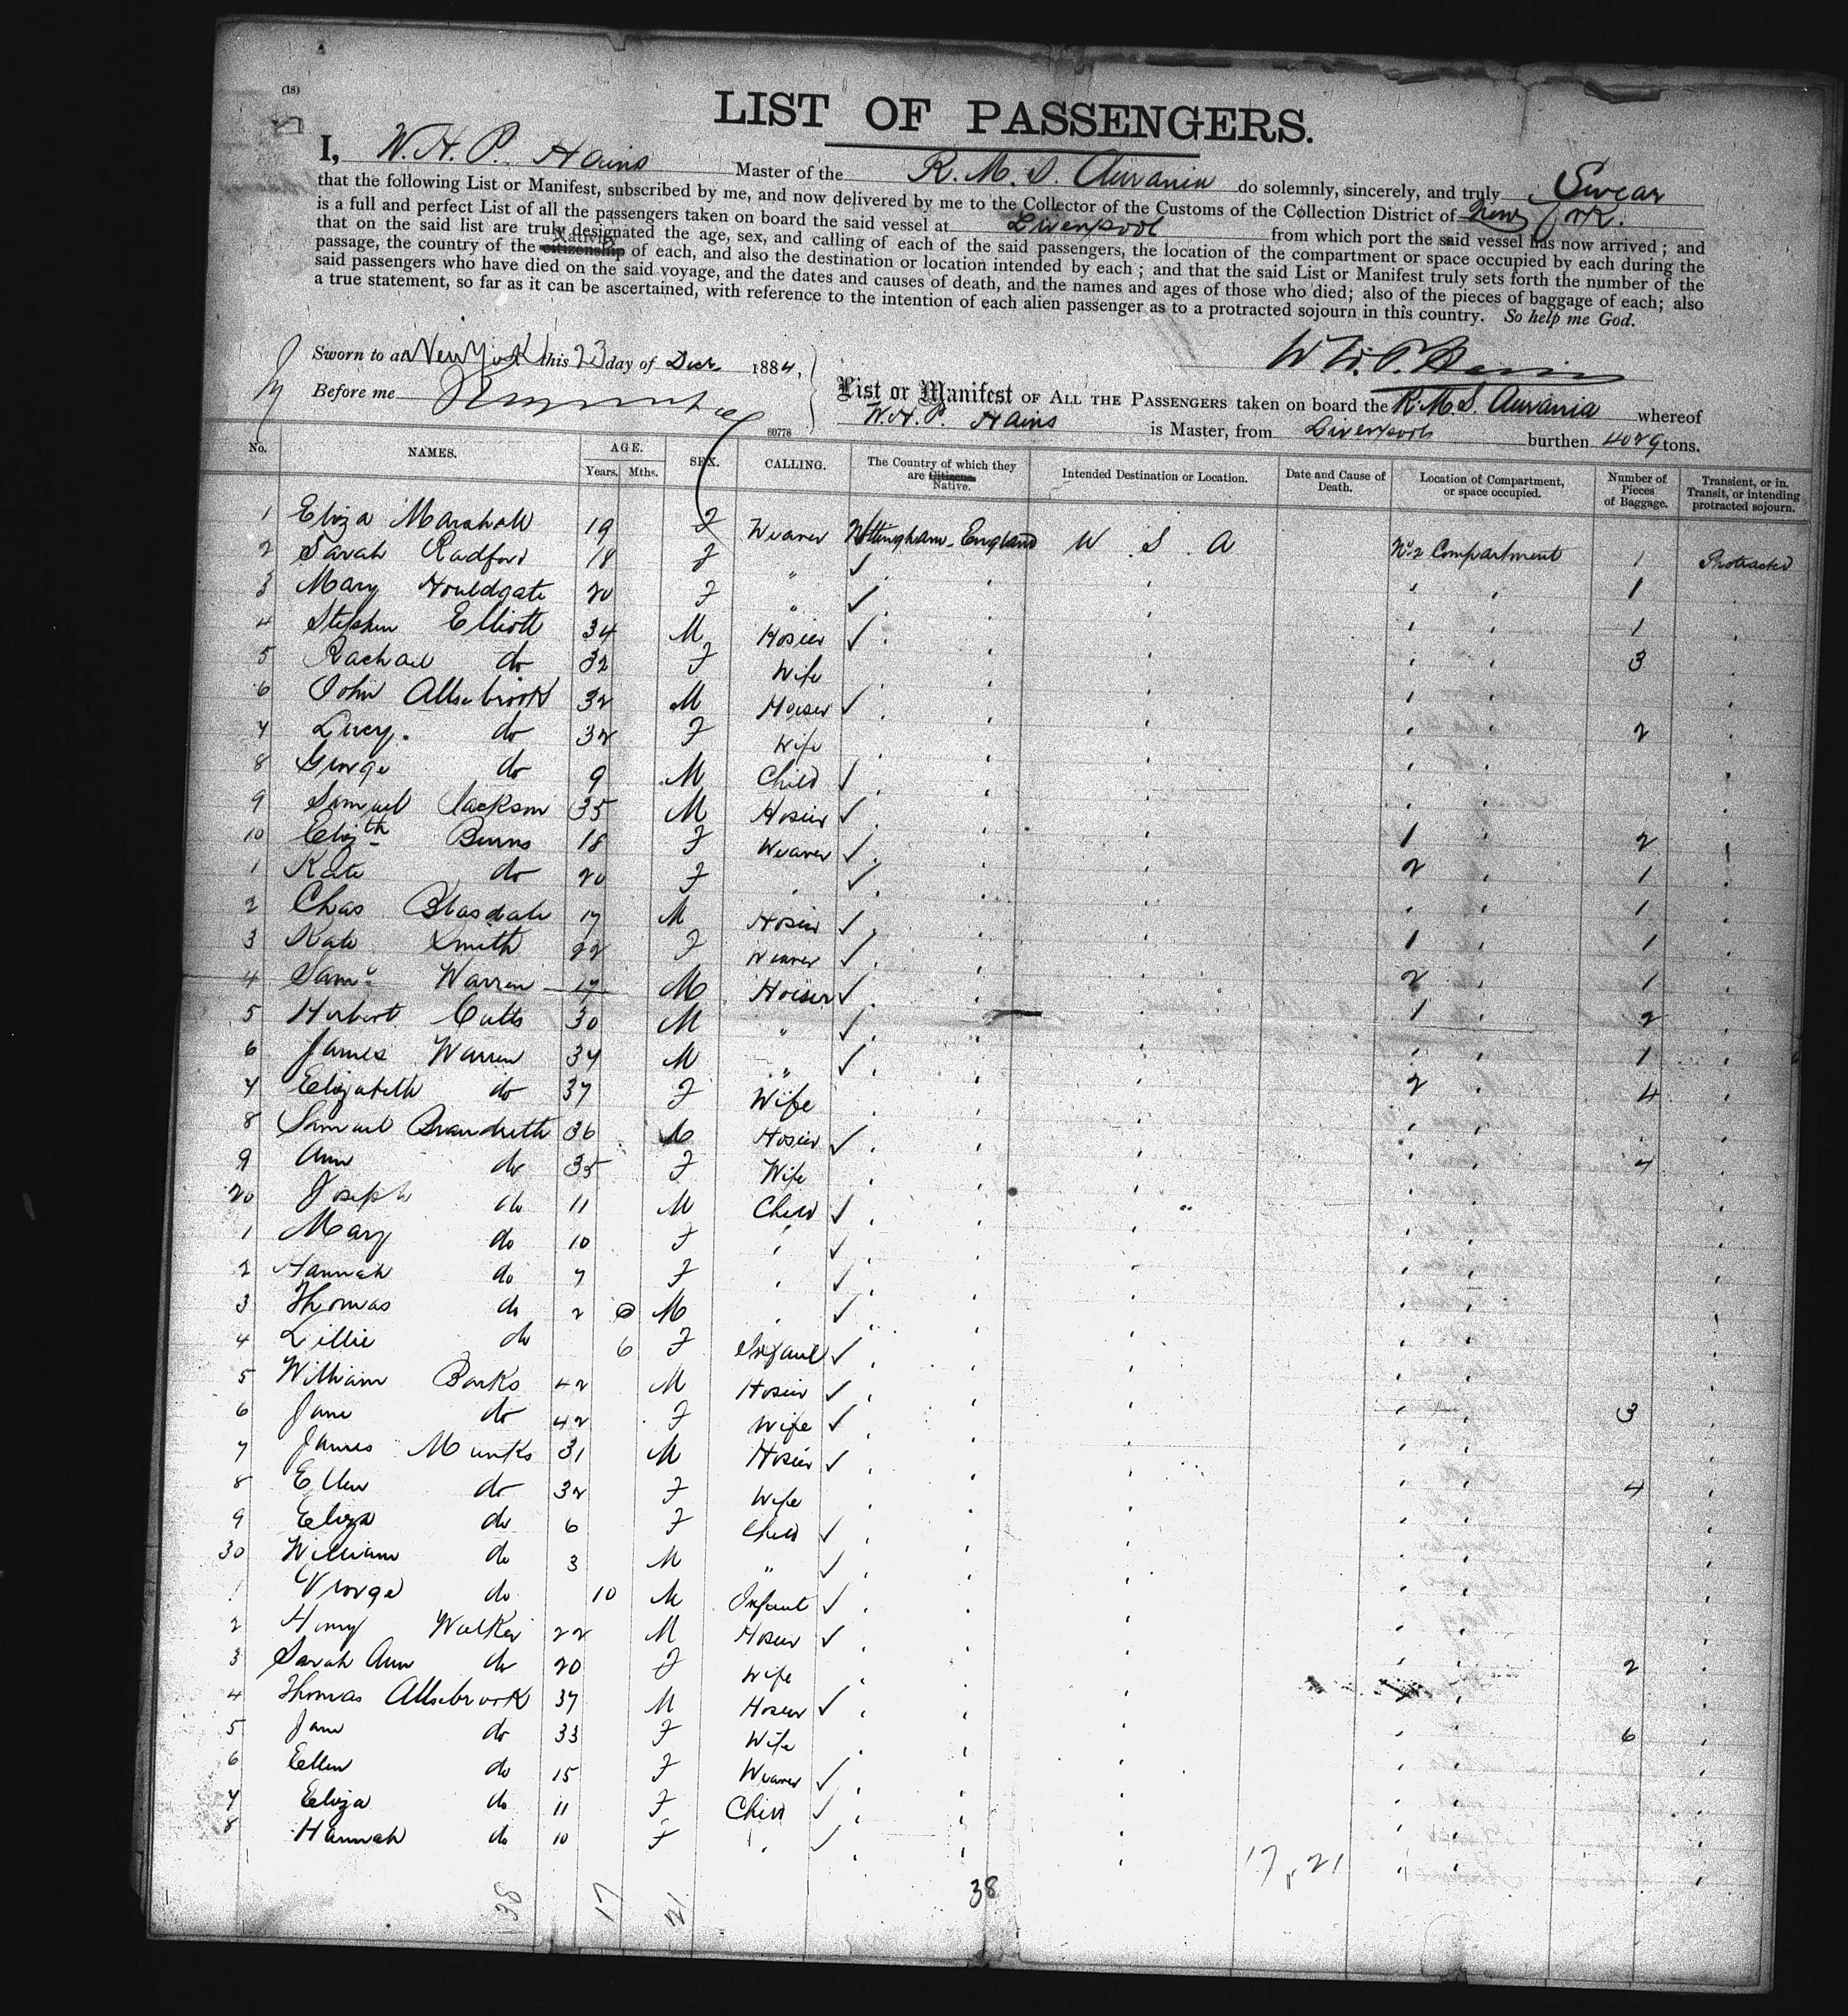 (18)
LIST OF PASSENGERS.
I, W. H. P. Hains Master of the R. M. S. Aurania do solemnly, sincerely, and truly Swear
that the following List or Manifest, subscribed by me, and now delivered by me to the Collector of the Customs of the Collection District of New York.
is a full and perfect List of all the passengers taken on board the said vessel at Liverpool from which port the said vessel has now arrived; and
that on the said list are truly designated the age, sex, and calling of each of the said passengers, the location of the compartment or space occupied by each during the
passage, the country of the citizenship Nativity of each, and also the destination or location intended by each; and that the said List or Manifest truly sets forth the number of the
said passengers who have died on the said voyage, and the dates and causes of death, and the names and ages of those who died; also of the pieces of baggage of each; also
a true statement, so far as it can be ascertained, with reference to the intention of each alien passenger as to a protracted sojourn in this country. So help me God.
W. H. P. Hains
Sworn to at New York this 23 day of Decr 1884,
Before me
List or Manifest OF ALL THE PASSENGERS taken on board the R.M.S. Aurania whereof
W. H. P. Hains is Master, from Liverpool burthen 4029 tons.
60778
No. NAMES. AGE. Years. Mths. SEX. CALLING. The Country of which they are Citizens. Native. Intended Destination or Location. Date and Cause of Death. Location of Compartment, or space occupied. Number of Pieces of Baggage. Transient, or in Transit, or intending protracted sojourn.
1 Eliza Marshall 19 F Weaver Nottingham - England U S A No. 2 Compartment 1 Protracted
2 Sarah Radford 18 F " ✓ 1
3 Mary Houldgate 20 F " ✓ 1
4 Stephen Elliott 34 M Hosier ✓ 3
5 Rachael do 32 F Wife
6 John Allsebrook 32 M Hosier ✓ 2
7 Lucy. do 32 F Wife
8 George do 9 M Child ✓
9 Samuel Jackson 35 M Hosier ✓ 1 2
10 Elizth Burns 18 F Weaver ✓ 2 1
1 Kate do 20 F ✓ 1
2 Chas Blasdale 17 M Hosier ✓ 1 1
3 Kate Smith 22 F Weaver ✓ 2 1
4 Saml Warren 17 M Hosier ✓ 1 2
5 Herbert Cutts 30 M " ✓ 1
6 James Warren 34 M " ✓ 2 4
7 Elizabeth do 37 F Wife
8 Samuel Brandreth 36 M Hosier ✓ 4
9 Ann do 35 F Wife
20 Joseph do 11 M Child ✓
1 Mary do 10 F ✓
2 Hannah do 7 F ✓
3 Thomas do 2 6 M ✓
4 Lillie do 6 F Infant ✓
5 William Barks 42 M Hosier ✓ 3
6 Jane do 42 F Wife ✓
7 James Munks 31 M Hosier ✓ 4
8 Ellen do 32 F Wife
9 Eliza do 6 F Child ✓
30 William do 3 M " ✓
1 George do 10 M Infant ✓
2 Henry Walker 22 M Hosier ✓ 2
3 Sarah Ann do 20 F Wife
4 Thomas Allsebrook 37 M Hosier ✓ 6
5 Jane do 33 F Wife
6 Ellen do 15 F Weaver ✓
7 Eliza do 11 F Child ✓
8 Hannah do 10 F ✓
17, 21
38 17 21 38